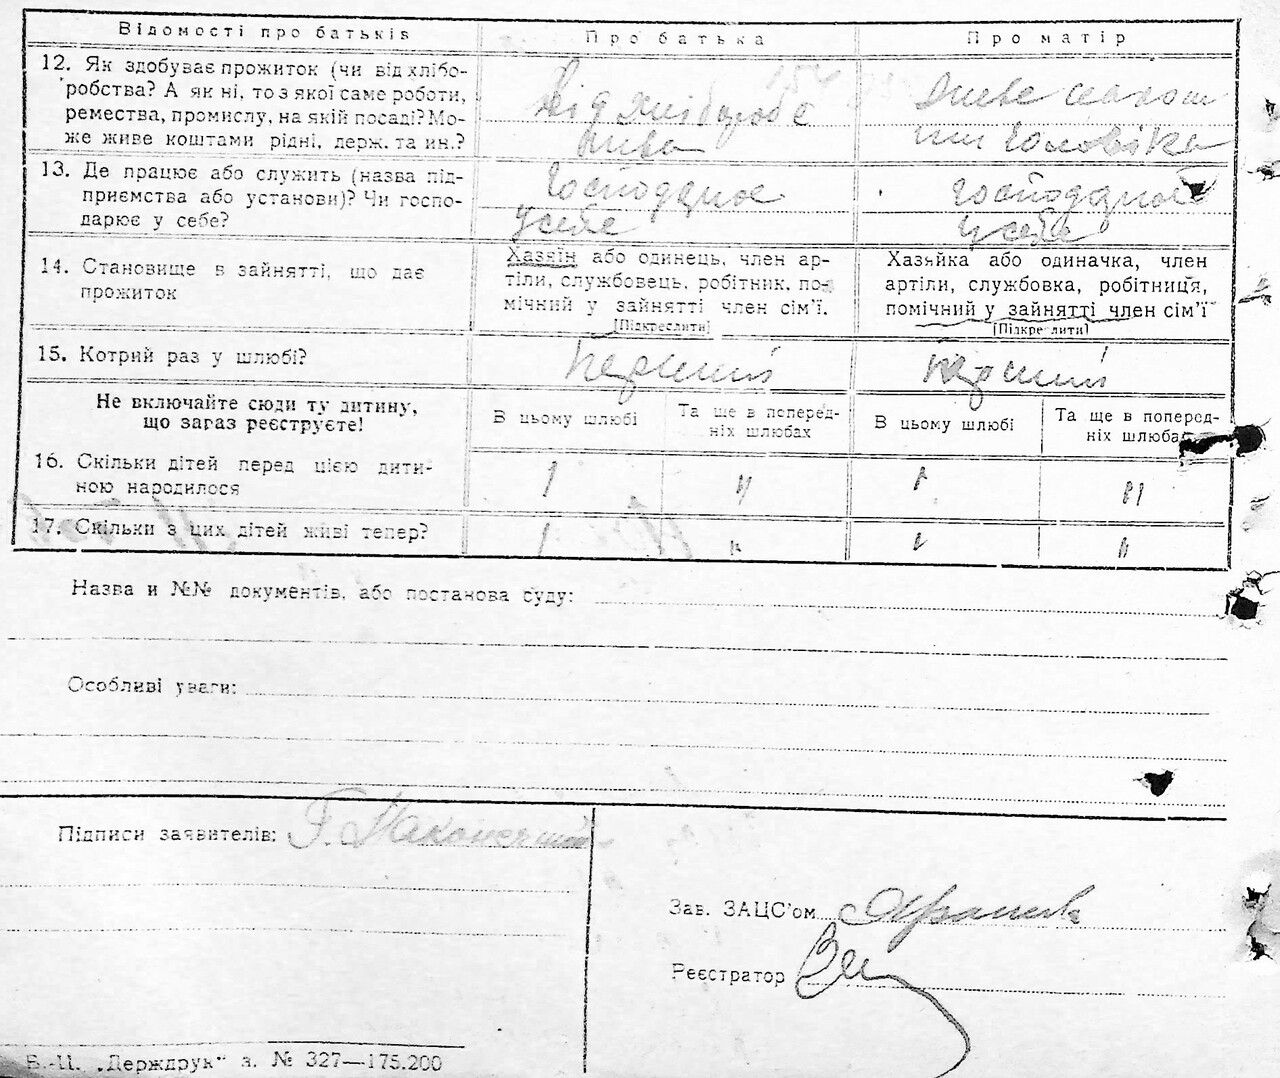 Відомості про батьків
Про батька
Про матір
12. Як здобуває прожиток (чи від хлібо-
робства? А як ні, то з якої саме роботи,
ремества, промислу, на якій посаді? Мо-
же живе коштами рідні, держ. та ин.?
Від хліборобс
тва
живе
чоловіка
13. Де працює або служить (назва під-
приємства або установи)? Чи госпо-
дарює у себе?
Господарює
у себе
Господарює
у себе
14. Становище в зайнятті, що дає
прожиток
Хазяїн або одинець, член ар-
тіли, службовець, робітник, по-
мічний у зайнятті член сім'ї.
[Підкреслити]
Хазяйка або одиначка, член
артіли, службовка, робітниця,
помічний у зайнятті член сім'ї
[Підкреслити]
15. Котрий раз у шлюбі?
перший
перший
Не включайте сюди ту дитину,
що загаз реєструєте!
В цьому шлюбі
Та ще в поперед-
ніх шлюбах
В цьому шлюбі
Та ще в поперед-
ніх шлюбах
16. Скільки дітей перед цією дити-
ною народилося
1
"
"
"
17. Скільки з цих дітей живі тепер?
1
"
"
"
Назва и №№ документів, або постанова суду:
Особливі уваги:
Підписи заявителів: Г.
Зав. ЗАЦС'ом
Реєстратор
В.-Ц. „Держдрук" з. № 327—175.200